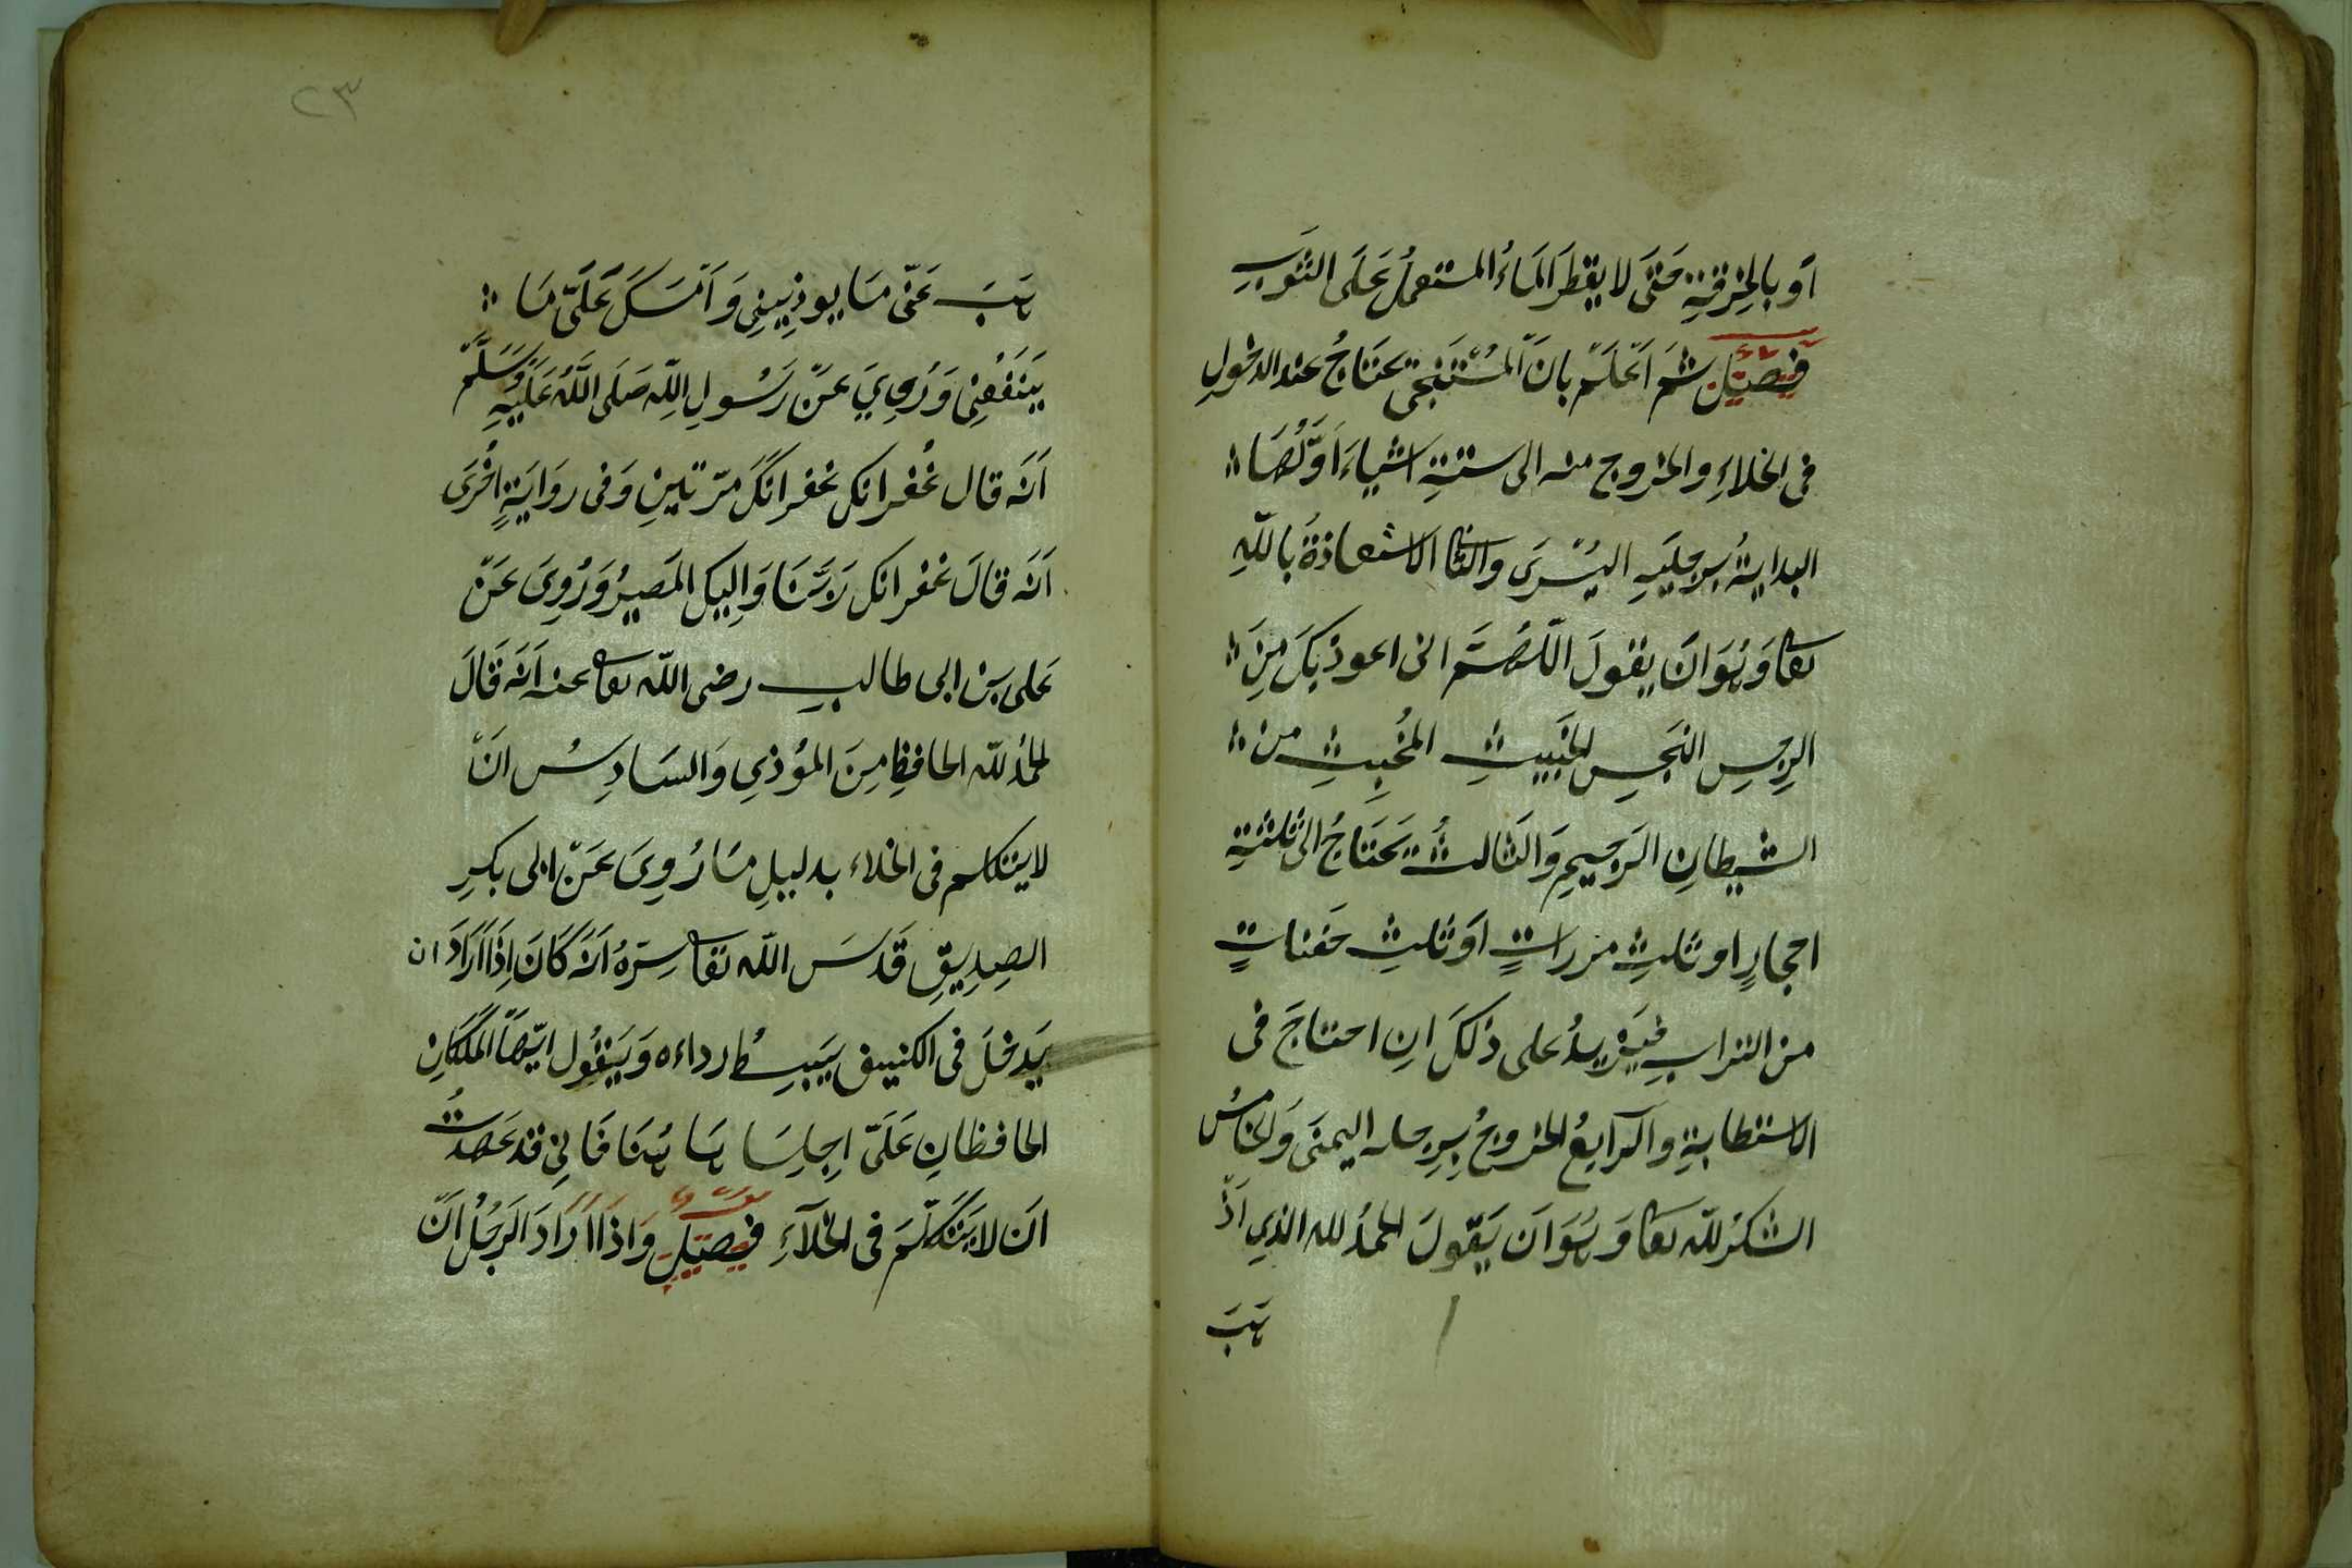 اَو بالخِرقةِ حَتىَّ لا يقطرَ المَاءُ المستعملُ عَلَى الثوبِ
فصل ثم اَعلم بانَّ المُستنجى يحتاجُ عند الدخولِ
فى الخلاءِ والخروج منه الى ستةِ اشياءَ اَوَّلُهَا
البدايةُ برجليَهِ اليُسْرَى والثانى الاستعاذةُ باللّهِ
تعالى وَهُوَ اَنْ يقولَ اللّهُمَّ انى اعوذ بكَ مِنَ
الرجسِ النَجسِ الخَبيثِ المُخبِثِ من
الشيطانِ الرَجيمِ وَالثَالثُ يَحتَاجُ الى ثلثةِ
احجارٍ او ثلثِ مدراتٍ اَو ثلثِ حَفناتٍ
من الترابِ فيَزيدُ على ذلكَ انِ احتاجَ فى
الاستطابةِ والرّابعُ الخروجُ بِرجله اليمنَى وَالخامسُ
الشكرُ للّه تعالى وَهُوَ اَن يَقولَ الحمدُ لله الذي اَذْ
هَبَ
٢٣
هَبَ عَنىّ مَا يوذِينِى وَاَمْسَكَ عَلَىّ مَا
يَنفَعُنِى وَرُوِيَ عَنْ رَسُولِ اللّه صَلَى اللّهُ عَلَيْهِ وَسَلَّمَ
اَنَه قال غُفرانكَ غفرانَكَ مرّتينِ وَفى روَايَةٍ اُخْرَى
اَنَه قالَ غفرانكَ رَبَّنَا وَاِليكَ المَصيرُ وَرُوِىَ عَنْ
عَلى بن ابى طالبٍ رضى اللّه تعالى عنه اَنَه قَالَ
الحمدُ للّه الحافظِ مِنَ المؤذي وَالسَادِسُ انْ
لا يتكلم فى الخلاء بدليلِ مَا رُوِىَ عَنْ ابى بكرٍ
الصِدِيقِ قَدسَ اللّه تعالى سِرّهُ اَنَهَ كَانَ اِذَا اَرَادَ ان
يَدخلَ فى الكنيف يَبسِطُ رداءه وَيَقُول ايّهَا المَلَكَانِ
الحافظانِ عَلَىّ اِجلِسَا هَا هُنَا فَانِى قد عَهدتُ
اَن لا يَتَكلَّمَ فى الخَلآءِ فصل وَاذَا اَرَادَ الرَجُلُ اَنْ